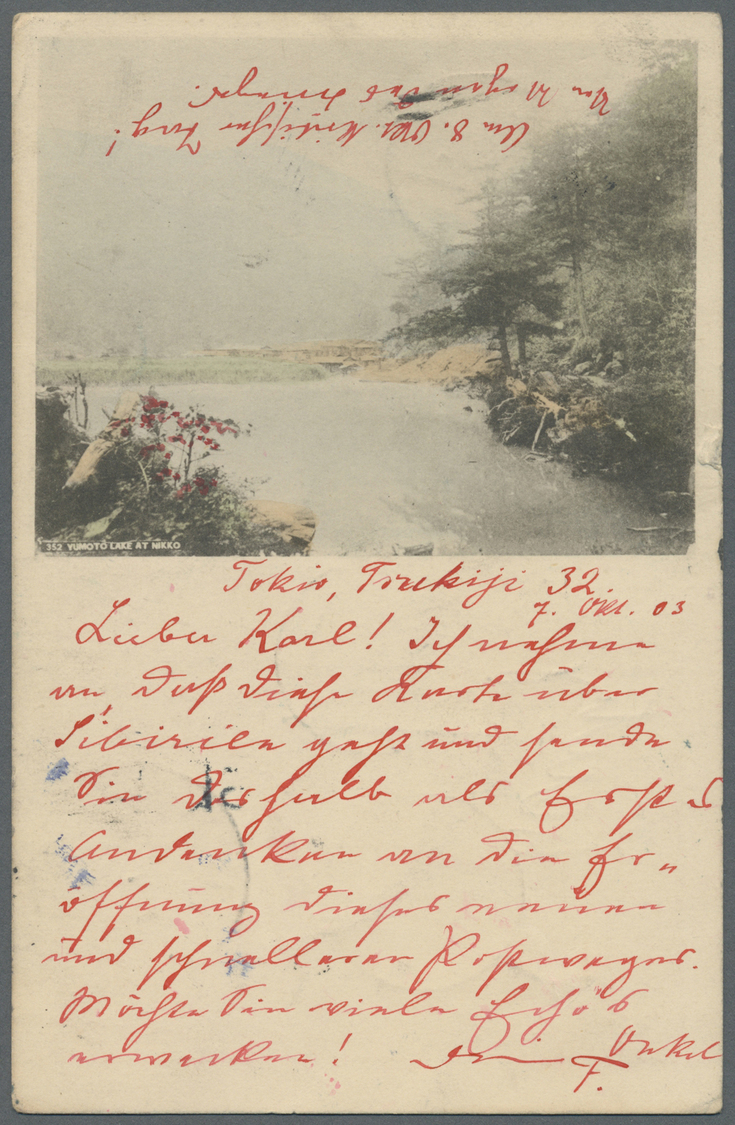 Am 8. Okt. kritischer Tag!
Von Morgen das
352 YUMOTO LAKE AT NIKKO
Tokio, Tsukiji 32.
7. Okt. 03
Lieber Karl! Ich nehme
an, daß diese Karte über
Sibirien geht und sende
Sie deshalb als Erstes
Andenken an die Er„
öffnung dieses neuen
und schnelleren Postweges.
Möchte Sie viele Echos
erwecken! Dein Onkel
F.